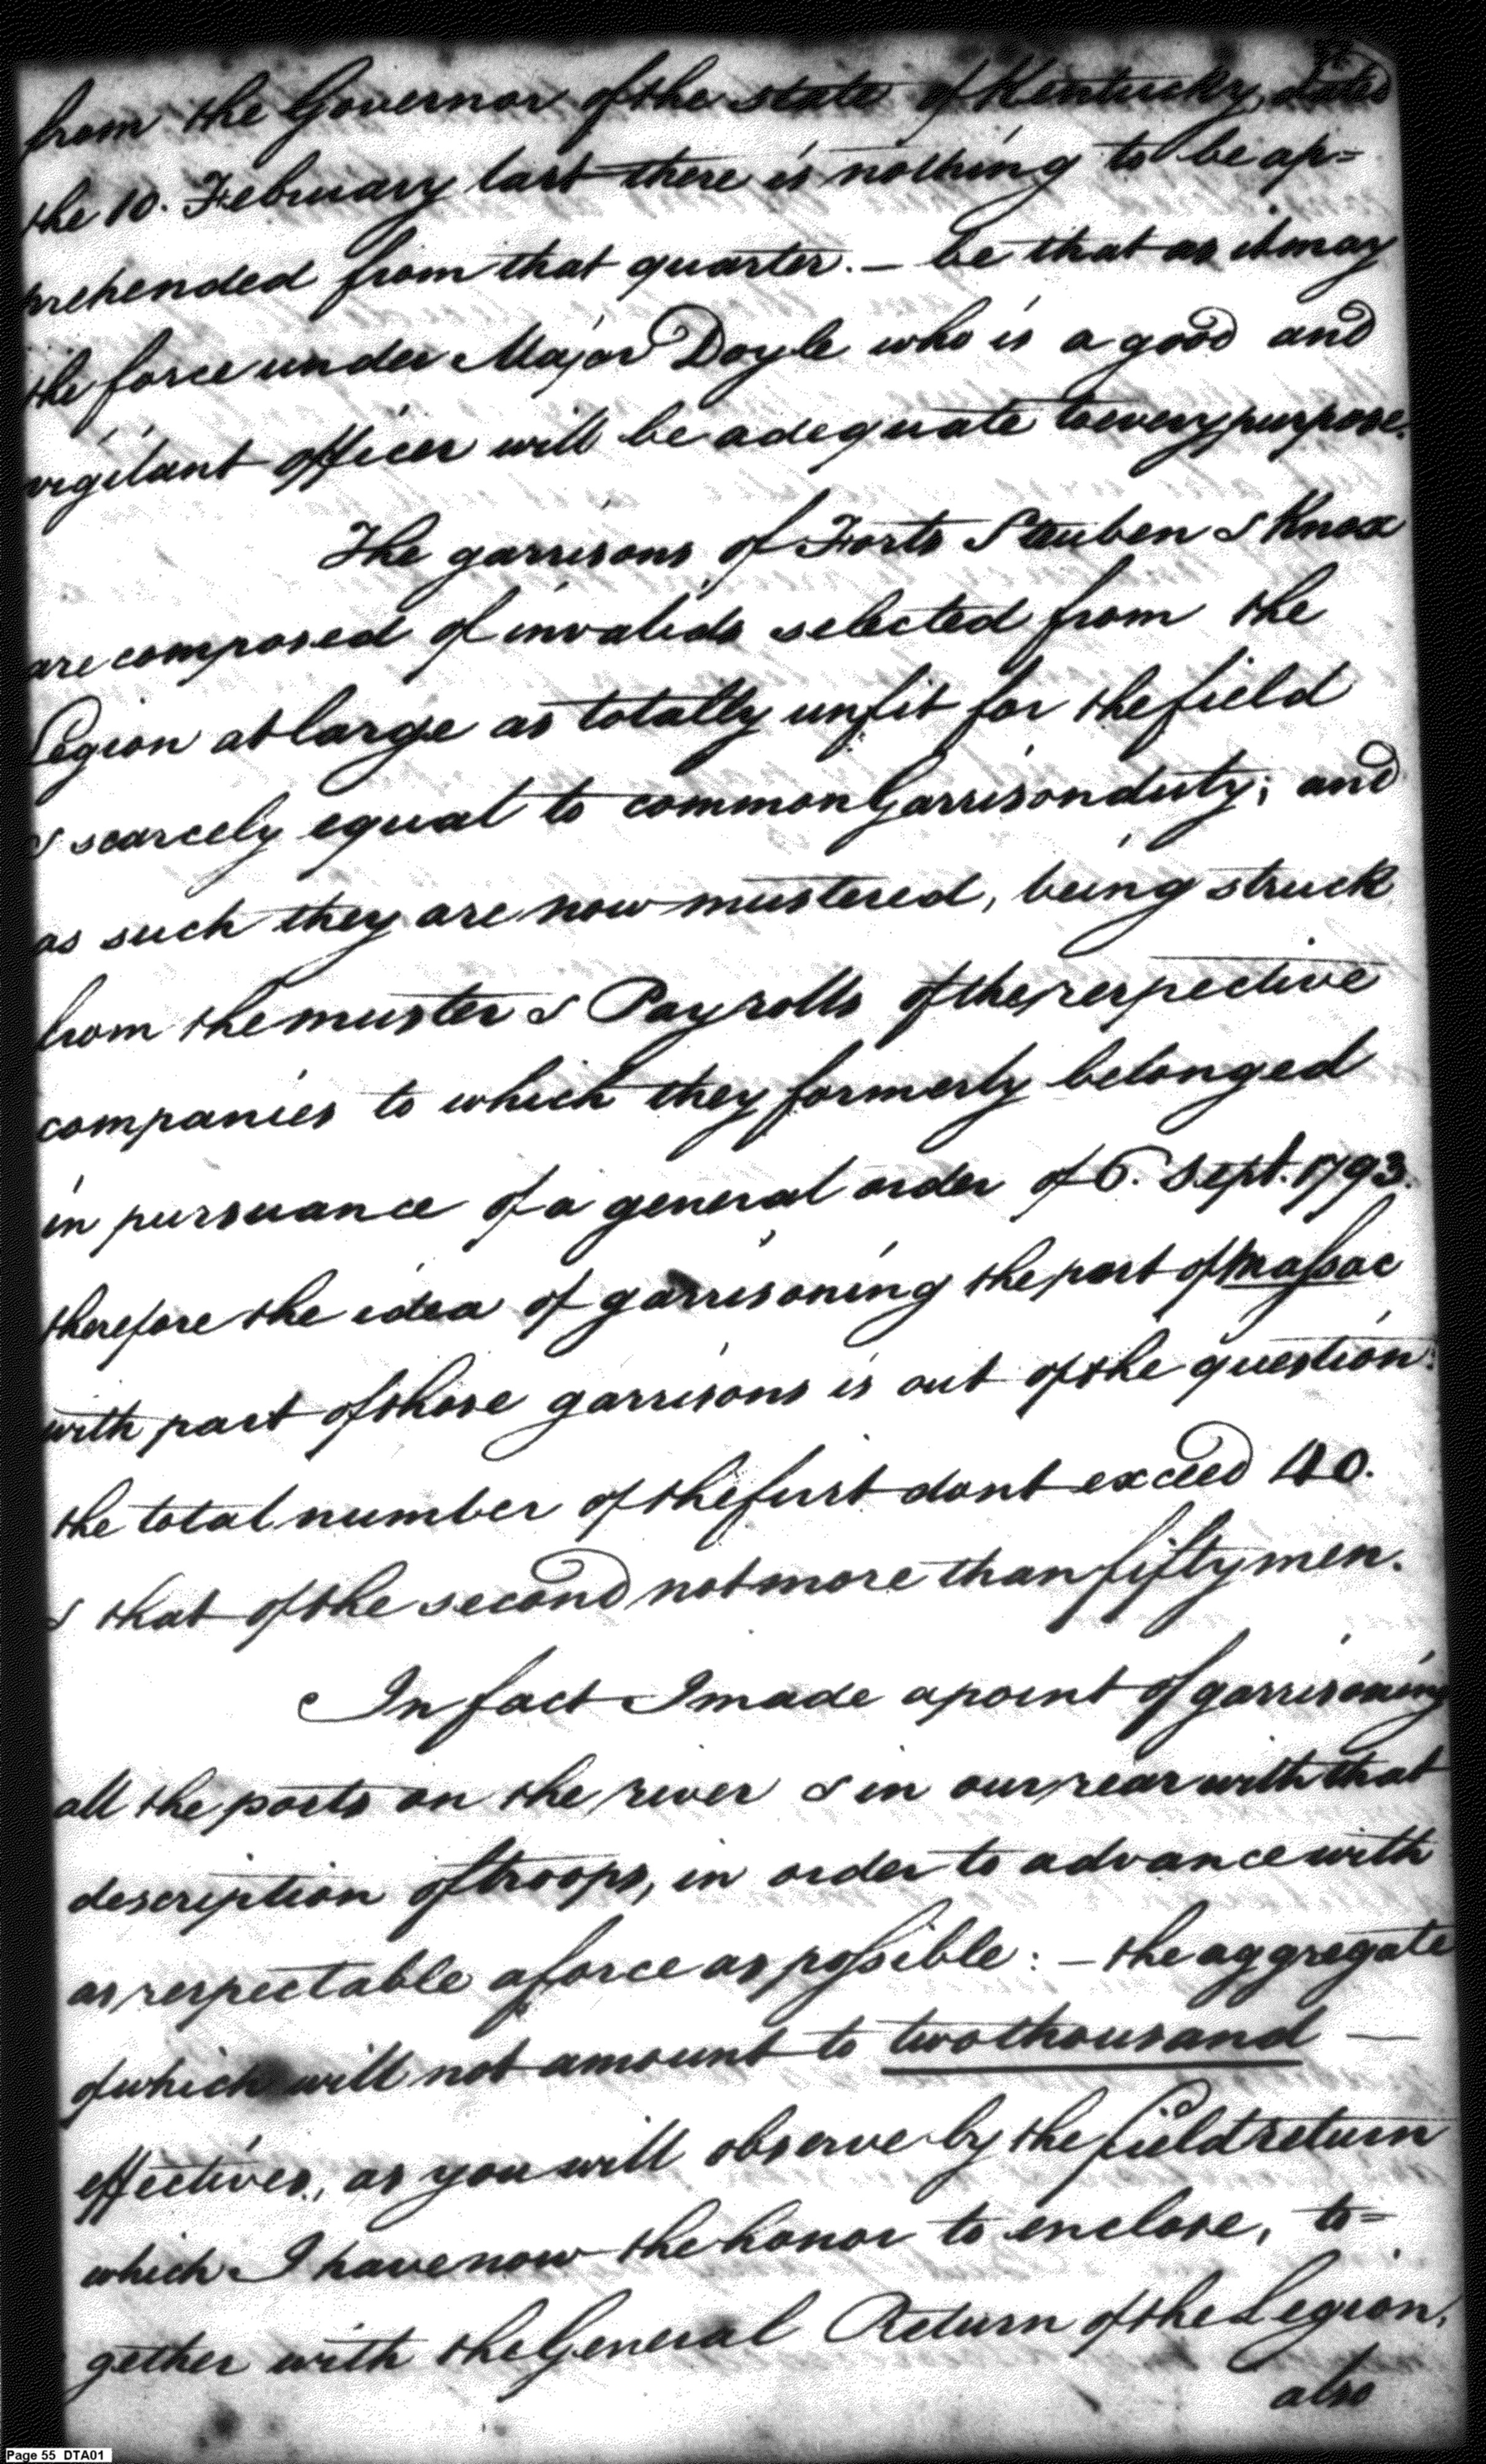 from the Governor of the state of Kentucky, dated
the 10. February last there is nothing to be ap=
prehended from that quarter. — be that as it may
the force under Major Doyle who is a good and
vigilant officer will be adequate to every purpose.
The garrisons of Forts Steuben & Knox
are composed of invalids selected from the
Legion at large as totally unfit for the field
& scarcely equal to common Garrison duty; and
as such they are now mustered, being struck
from the muster & Pay rolls of the respective
companies to which they formerly belonged
in pursuance of a general order of 6. Sept. 1793.
therefore the idea of garrisoning the post of Massac
with part of those garrisons is out of the question:
the total number of the first dont exceed 40.
& that of the second not more than fifty men.
In fact I made a point of garrisoning
all the posts on the river & in our rear with that
description of troops, in order to advance with
as respectable a force as possible: — the aggregate
of which will not amount to two thousand —
effectives, as you will observe by the field return
which I have now the honor to enclose, to=
gether with the General Return of the Legion,
also
Page 55 DTA01